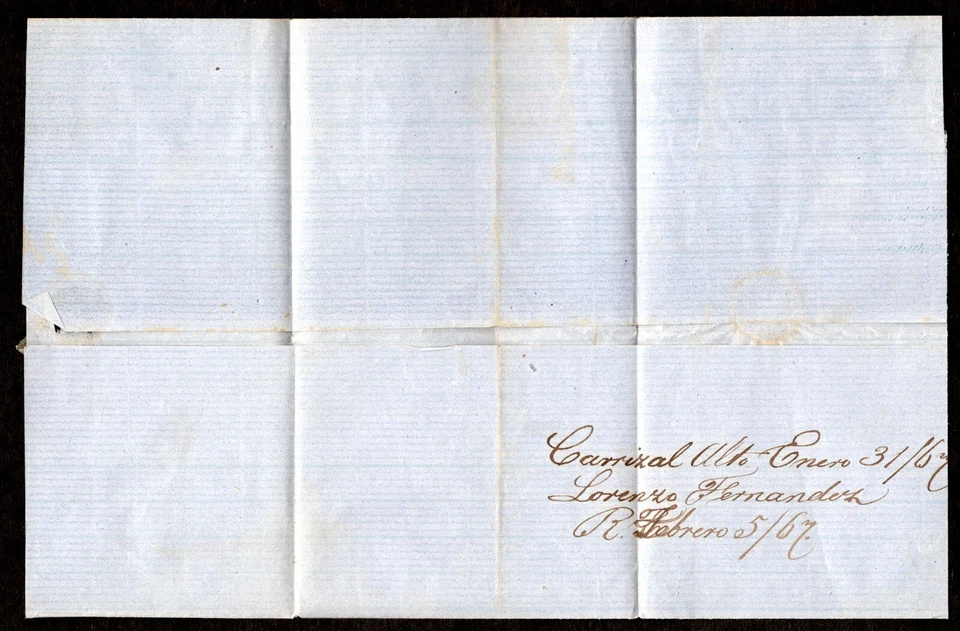 Carrizal Alto Enero 31/67
Lorenzo Fernandez
R. Febrero 5/67.